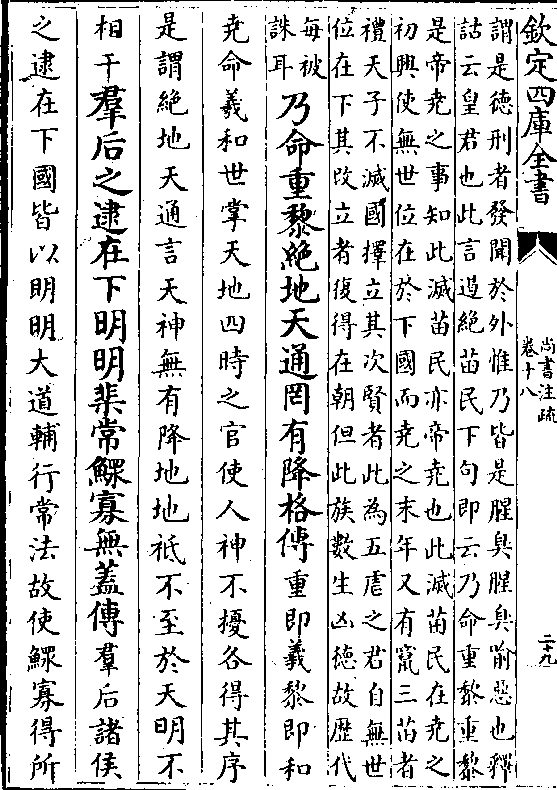 欽定四庫全書
尚書注疏
卷十八
二十九
謂是德刑者發聞於外惟乃皆是腥臭腥臭喻惡也釋
詁云皇君也此言遏絶苗民下句即云乃命重黎重黎
是帝堯之事知此滅苗民亦帝堯也此滅苗民在堯之
初興使無世位在於下國而堯之末年又有竄三苗者
禮天子不滅國擇立其次賢者此為五虐之君自無世
位在下其改立者復得在朝但此族數生凶徳故歴代
每被
誅耳
乃命重黎絶地天通罔有降格傳重即羲黎即和
堯命羲和世掌天地四時之官使人神不擾各得其序
是謂絶地天通言天神無有降地地祇不至於天明不
相干羣后之逮在下明明棐常鰥寡無蓋傳羣后諸侯
之逮在下國皆以明明大道輔行常法故使鰥寡得所